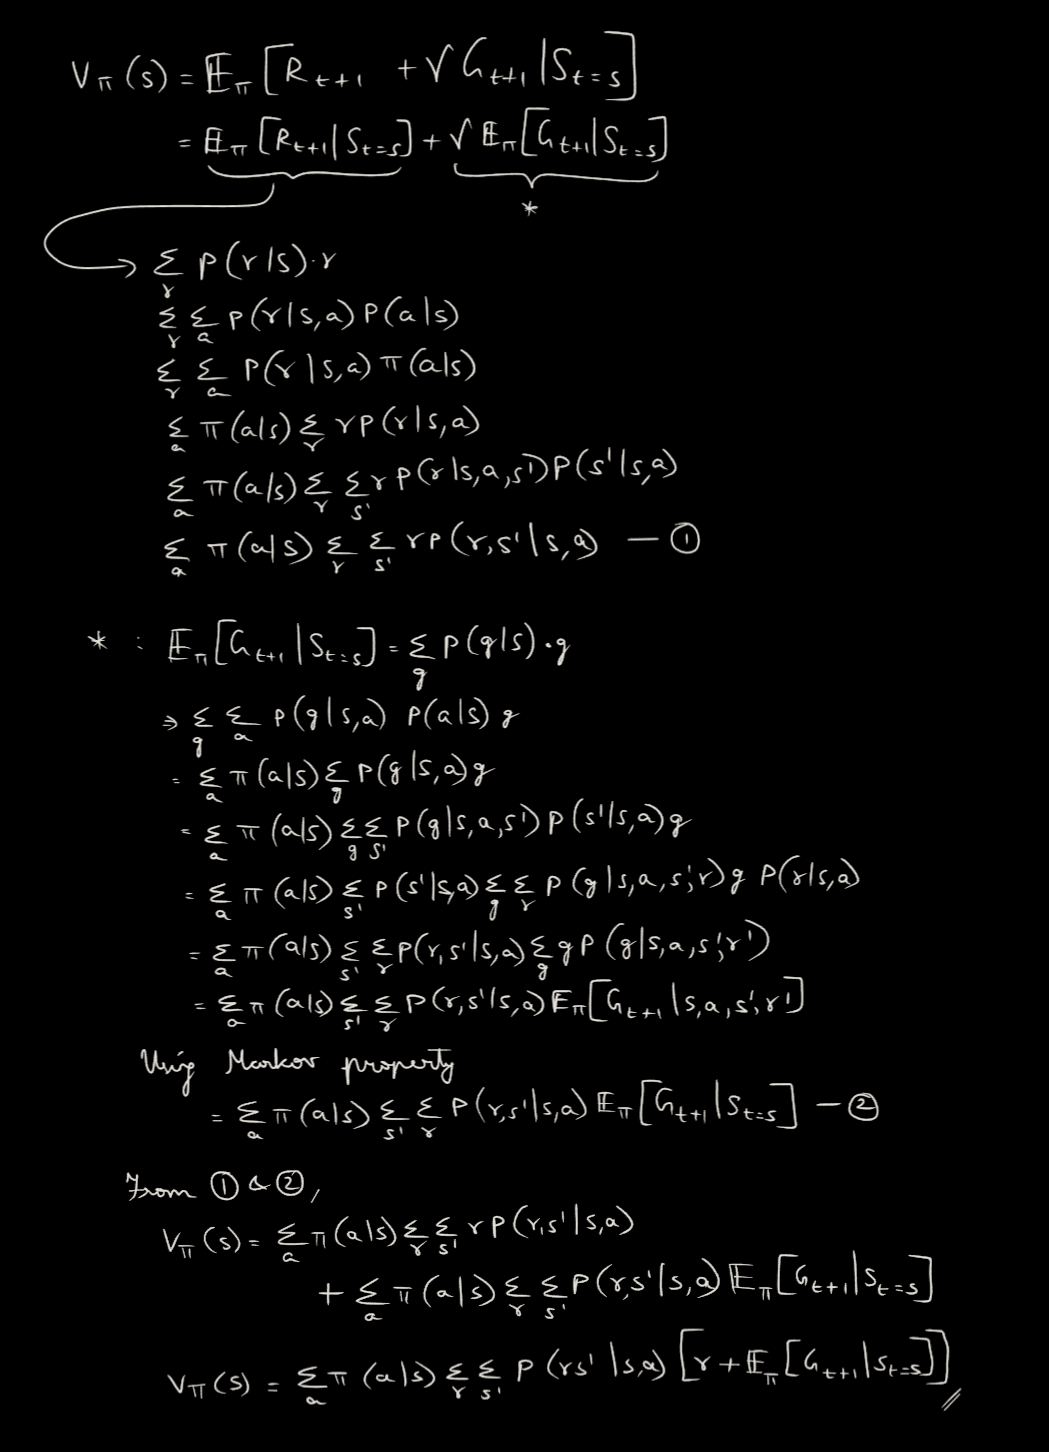 V_π(s) = 𝔼_π[R_{t+1} + √ G_{t+1} | S_{t=s}]
= 𝔼_π[R_{t+1} | S_{t=s}] + √ 𝔼_π[G_{t+1} | S_{t=s}]
*
Σ_r P(r|s)·r
Σ_r Σ_a P(r|s,a) P(a|s)
Σ_r Σ_a P(r|s,a) π(a|s)
Σ_a π(a|s) Σ_r r P(r|s,a)
Σ_a π(a|s) Σ_r Σ_s' r P(r|s,a,s') P(s'|s,a)
Σ_a π(a|s) Σ_r Σ_s' r P(r,s'|s,a) — ①
* : 𝔼_π[G_{t+1} | S_{t=s}] = Σ_g P(g|s)·g
⇒ Σ_g Σ_a P(g|s,a) P(a|s) g
= Σ_a π(a|s) Σ_g P(g|s,a) g
= Σ_a π(a|s) Σ_g Σ_s' P(g|s,a,s') P(s'|s,a) g
= Σ_a π(a|s) Σ_s' P(s'|s,a) Σ_g Σ_r P(g|s,a,s',r) g P(r|s,a)
= Σ_a π(a|s) Σ_s' Σ_r P(r,s'|s,a) Σ_g g P(g|s,a,s',r')
= Σ_a π(a|s) Σ_s' Σ_r P(r,s'|s,a) 𝔼_π[G_{t+1} | s,a,s',r']
Using Markov property
= Σ_a π(a|s) Σ_s' Σ_r P(r,s'|s,a) 𝔼_π[G_{t+1} | S_{t=s}] — ②
From ① & ②,
V_π(s) = Σ_a π(a|s) Σ_r Σ_s' r P(r,s'|s,a)
+ Σ_a π(a|s) Σ_r Σ_s' P(r,s'|s,a) 𝔼_π[G_{t+1} | S_{t=s}]
V_π(s) = Σ_a π(a|s) Σ_r Σ_s' P(rs'|s,a) [r + 𝔼_π[G_{t+1} | S_{t=s}]]